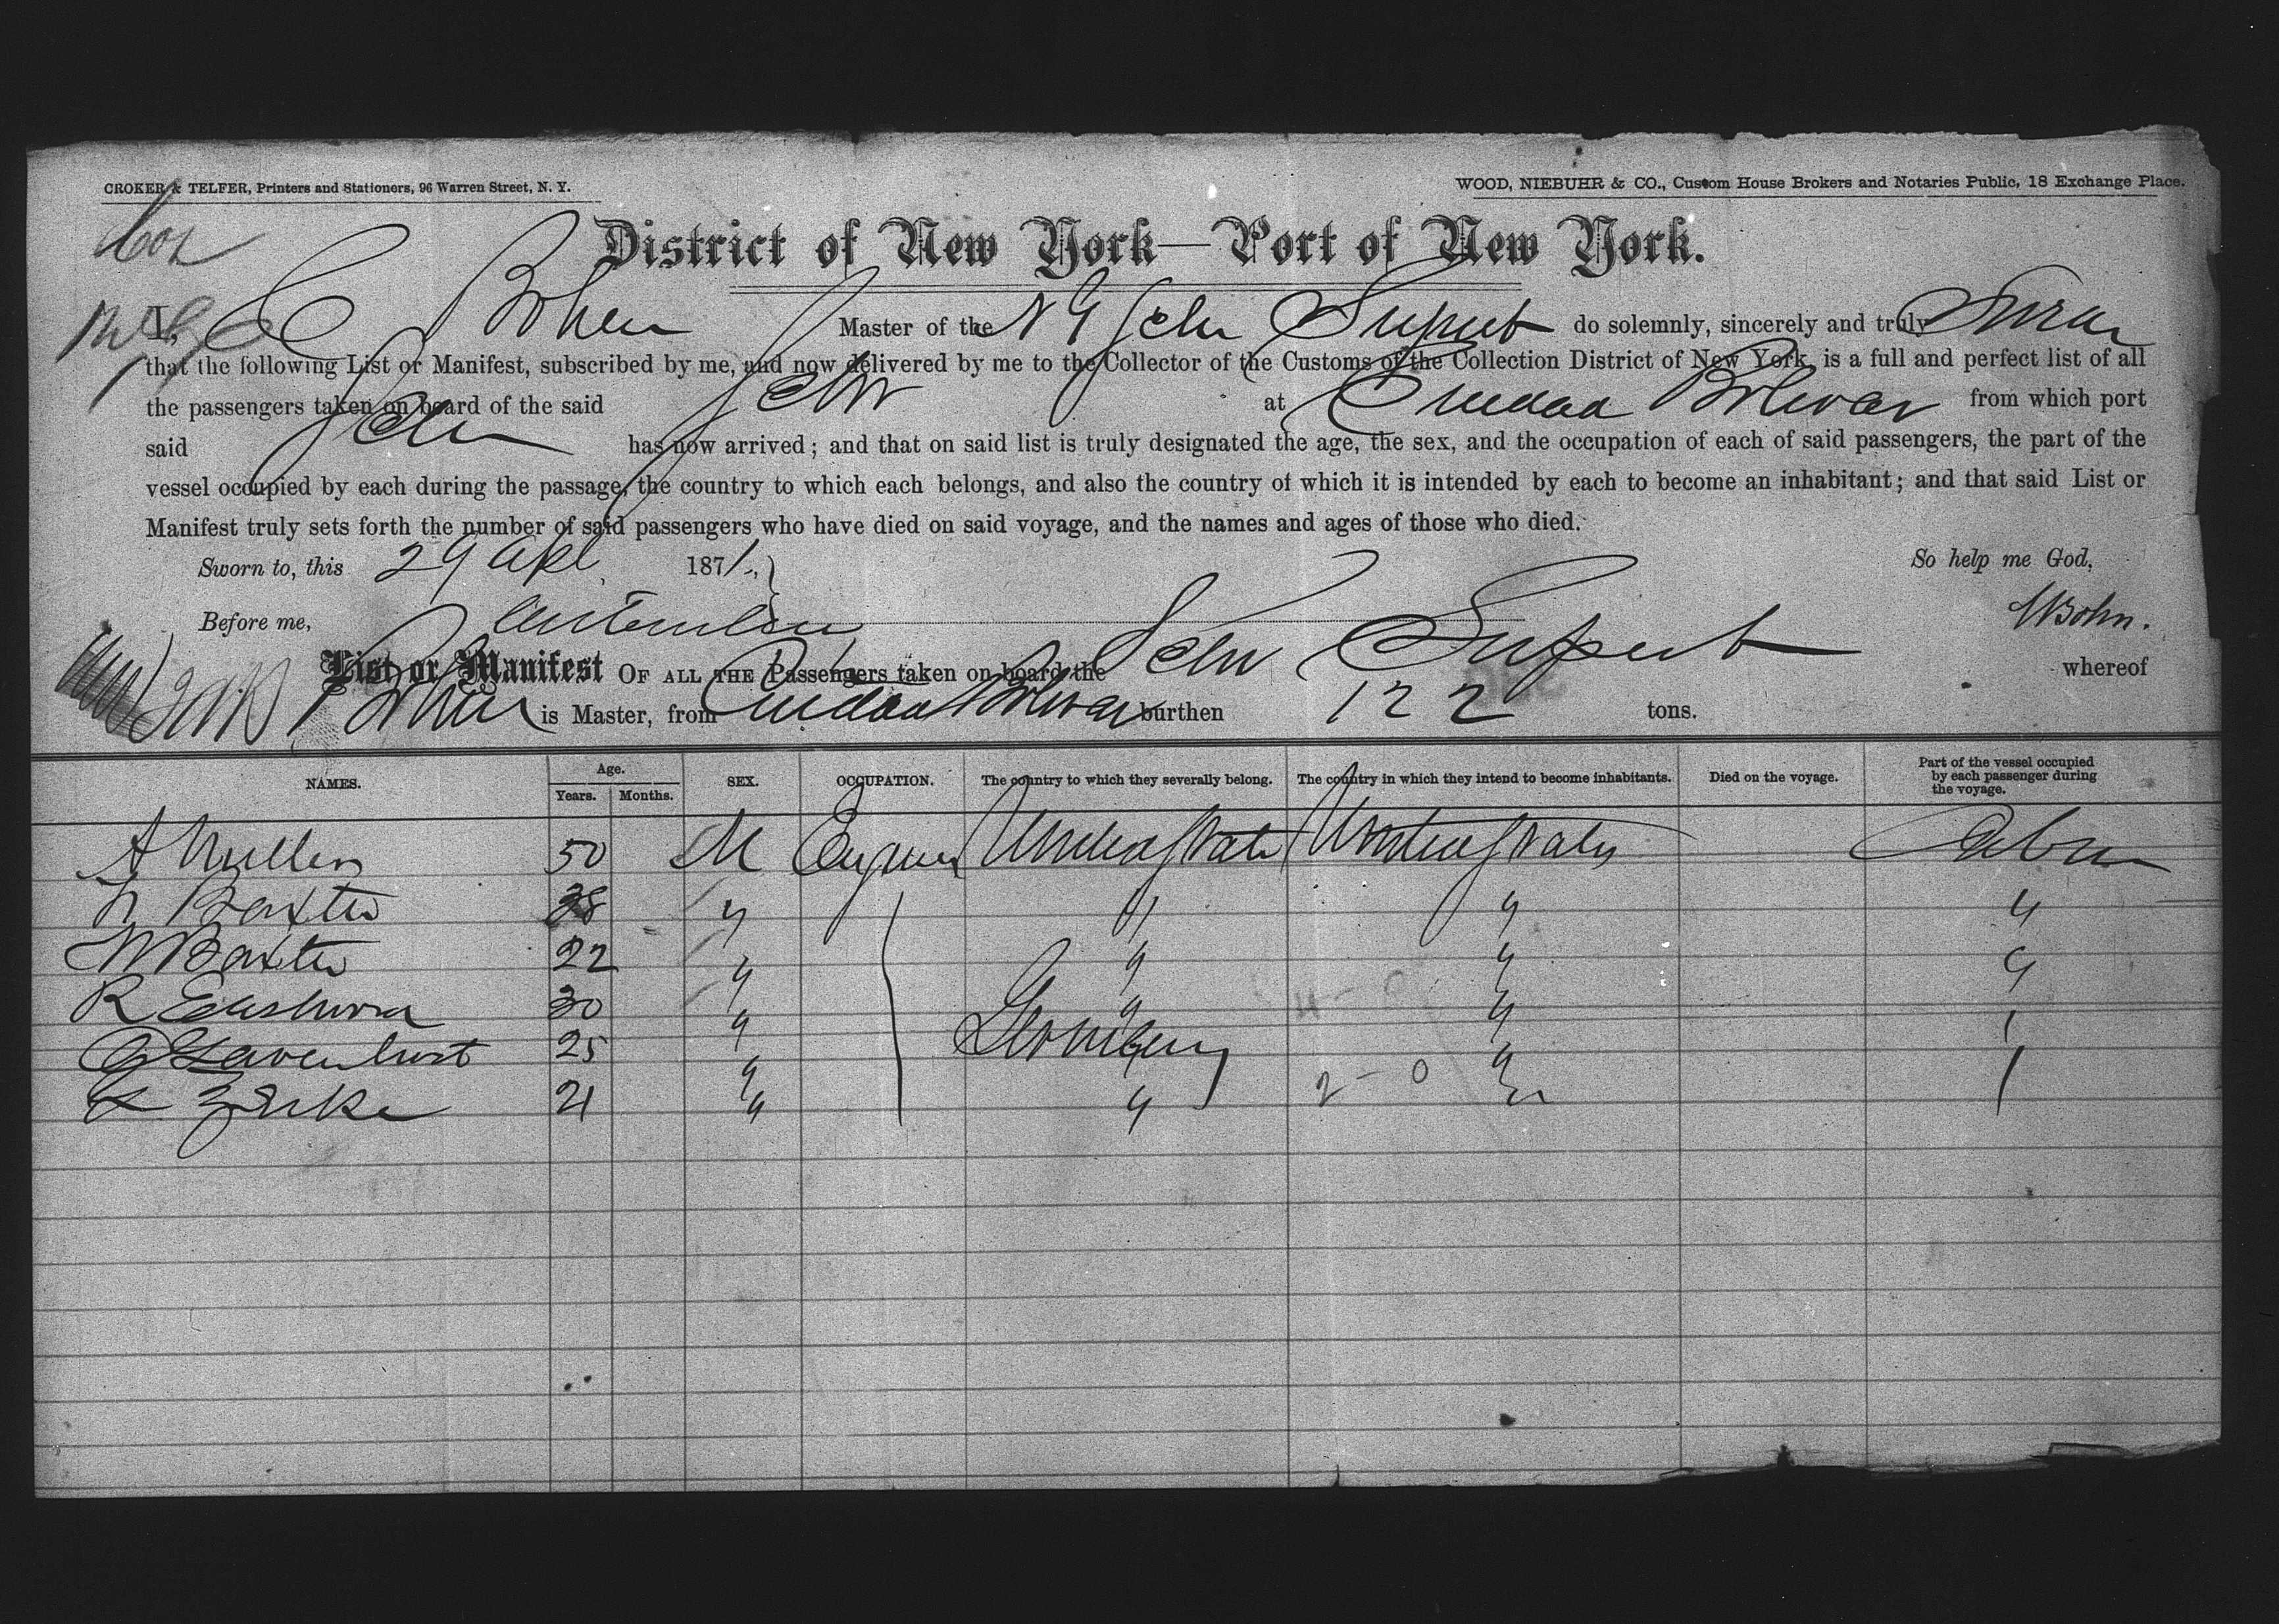 CROKER & TELFER, Printers and Stationers, 96 Warren Street, N. Y.
WOOD, NIEBUHR & CO., Custom House Brokers and Notaries Public, 18 Exchange Place.
District of New York—Port of New York.
I, C Bohn Master of the N G Schr do solemnly, sincerely and truly Swear
that the following List or Manifest, subscribed by me, and now delivered by me to the Collector of the Customs of the Collection District of New York, is a full and perfect list of all
the passengers taken on board of the said Schr at Ciudad Bolivar from which port
said Schr has now arrived; and that on said list is truly designated the age, the sex, and the occupation of each of said passengers, the part of the
vessel occupied by each during the passage, the country to which each belongs, and also the country of which it is intended by each to become an inhabitant; and that said List or
Manifest truly sets forth the number of said passengers who have died on said voyage, and the names and ages of those who died.
Sworn to, this 29 Apl 1871.
So help me God,
Before me,
CBohn.
List or Manifest OF ALL THE Passengers taken on board the Schr whereof
Bohn is Master, from Ciudad Bolivar burthen 122 tons.
NAMES. Age. Years. Months. SEX. OCCUPATION. The country to which they severally belong. The country in which they intend to become inhabitants. Died on the voyage. Part of the vessel occupied by each passenger during the voyage.
A Mullen 50 M Engineer United States United States Cabin
Baxter 38 " " " "
W Baxter 22 " " " "
R 30 " " "
25 " Germany "
21 " "